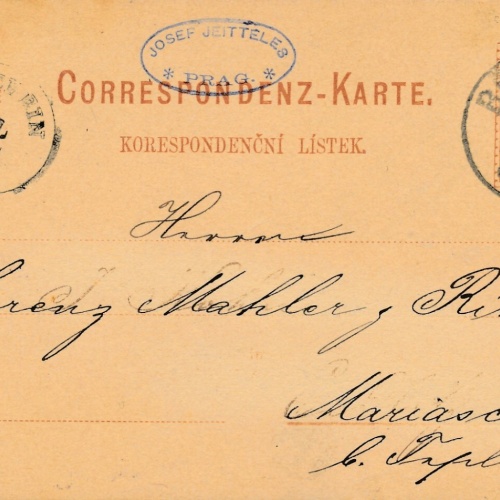 JOSEF JEITTELES
* PRAG. *
CORRESPONDENZ-KARTE.
KORESPONDENČNÍ LÍSTEK.
Herrn
Mahler &
Mariasc
b. Tepl